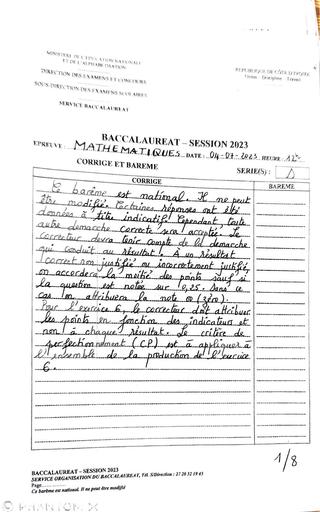 MINISTERE DE L'EDUCATION NATIONALE
ET DE L'ALPHABETISATION
REPUBLIQUE DE CÔTE D'IVOIRE
Union - Discipline - Travail
DIRECTION DES EXAMENS ET CONCOURS
SOUS-DIRECTION DES EXAMENS SCOLAIRES
SERVICE BACCALAUREAT
BACCALAUREAT – SESSION 2023
EPREUVE : MATHEMATIQUES DATE : 04-07-2023 HEURE :
CORRIGE ET BAREME SERIE(S) : D
CORRIGE BAREME
Ce barème est national. Il ne peut
être modifié. Certaines réponses ont été
données à titre indicatif. Cependant toute
autre démarche correcte sera acceptée. Le
correcteur devra tenir compte de la démarche
qui conduit au résultat. A un résultat
correct non justifié ou incorrectement justifié,
on accordera la moitié des points sauf si
la question est notée sur 0,25. Dans ce
cas on attribuera la note 00 (zéro).
Pour l'exercice 6, le correcteur doit attribuer
les points en fonction des indicateurs et
non à chaque résultat. Le critère de
perfectionnement (CP) est à appliquer à
l'ensemble de la production de l'exercice
6.
1/8
BACCALAUREAT – SESSION 2023
SERVICE ORGANISATION DU BACCALAUREAT, Tél. S/Direction : 27 20 32 19 45
Page
Ce barème est national. Il ne peut être modifié
PHANTOM X